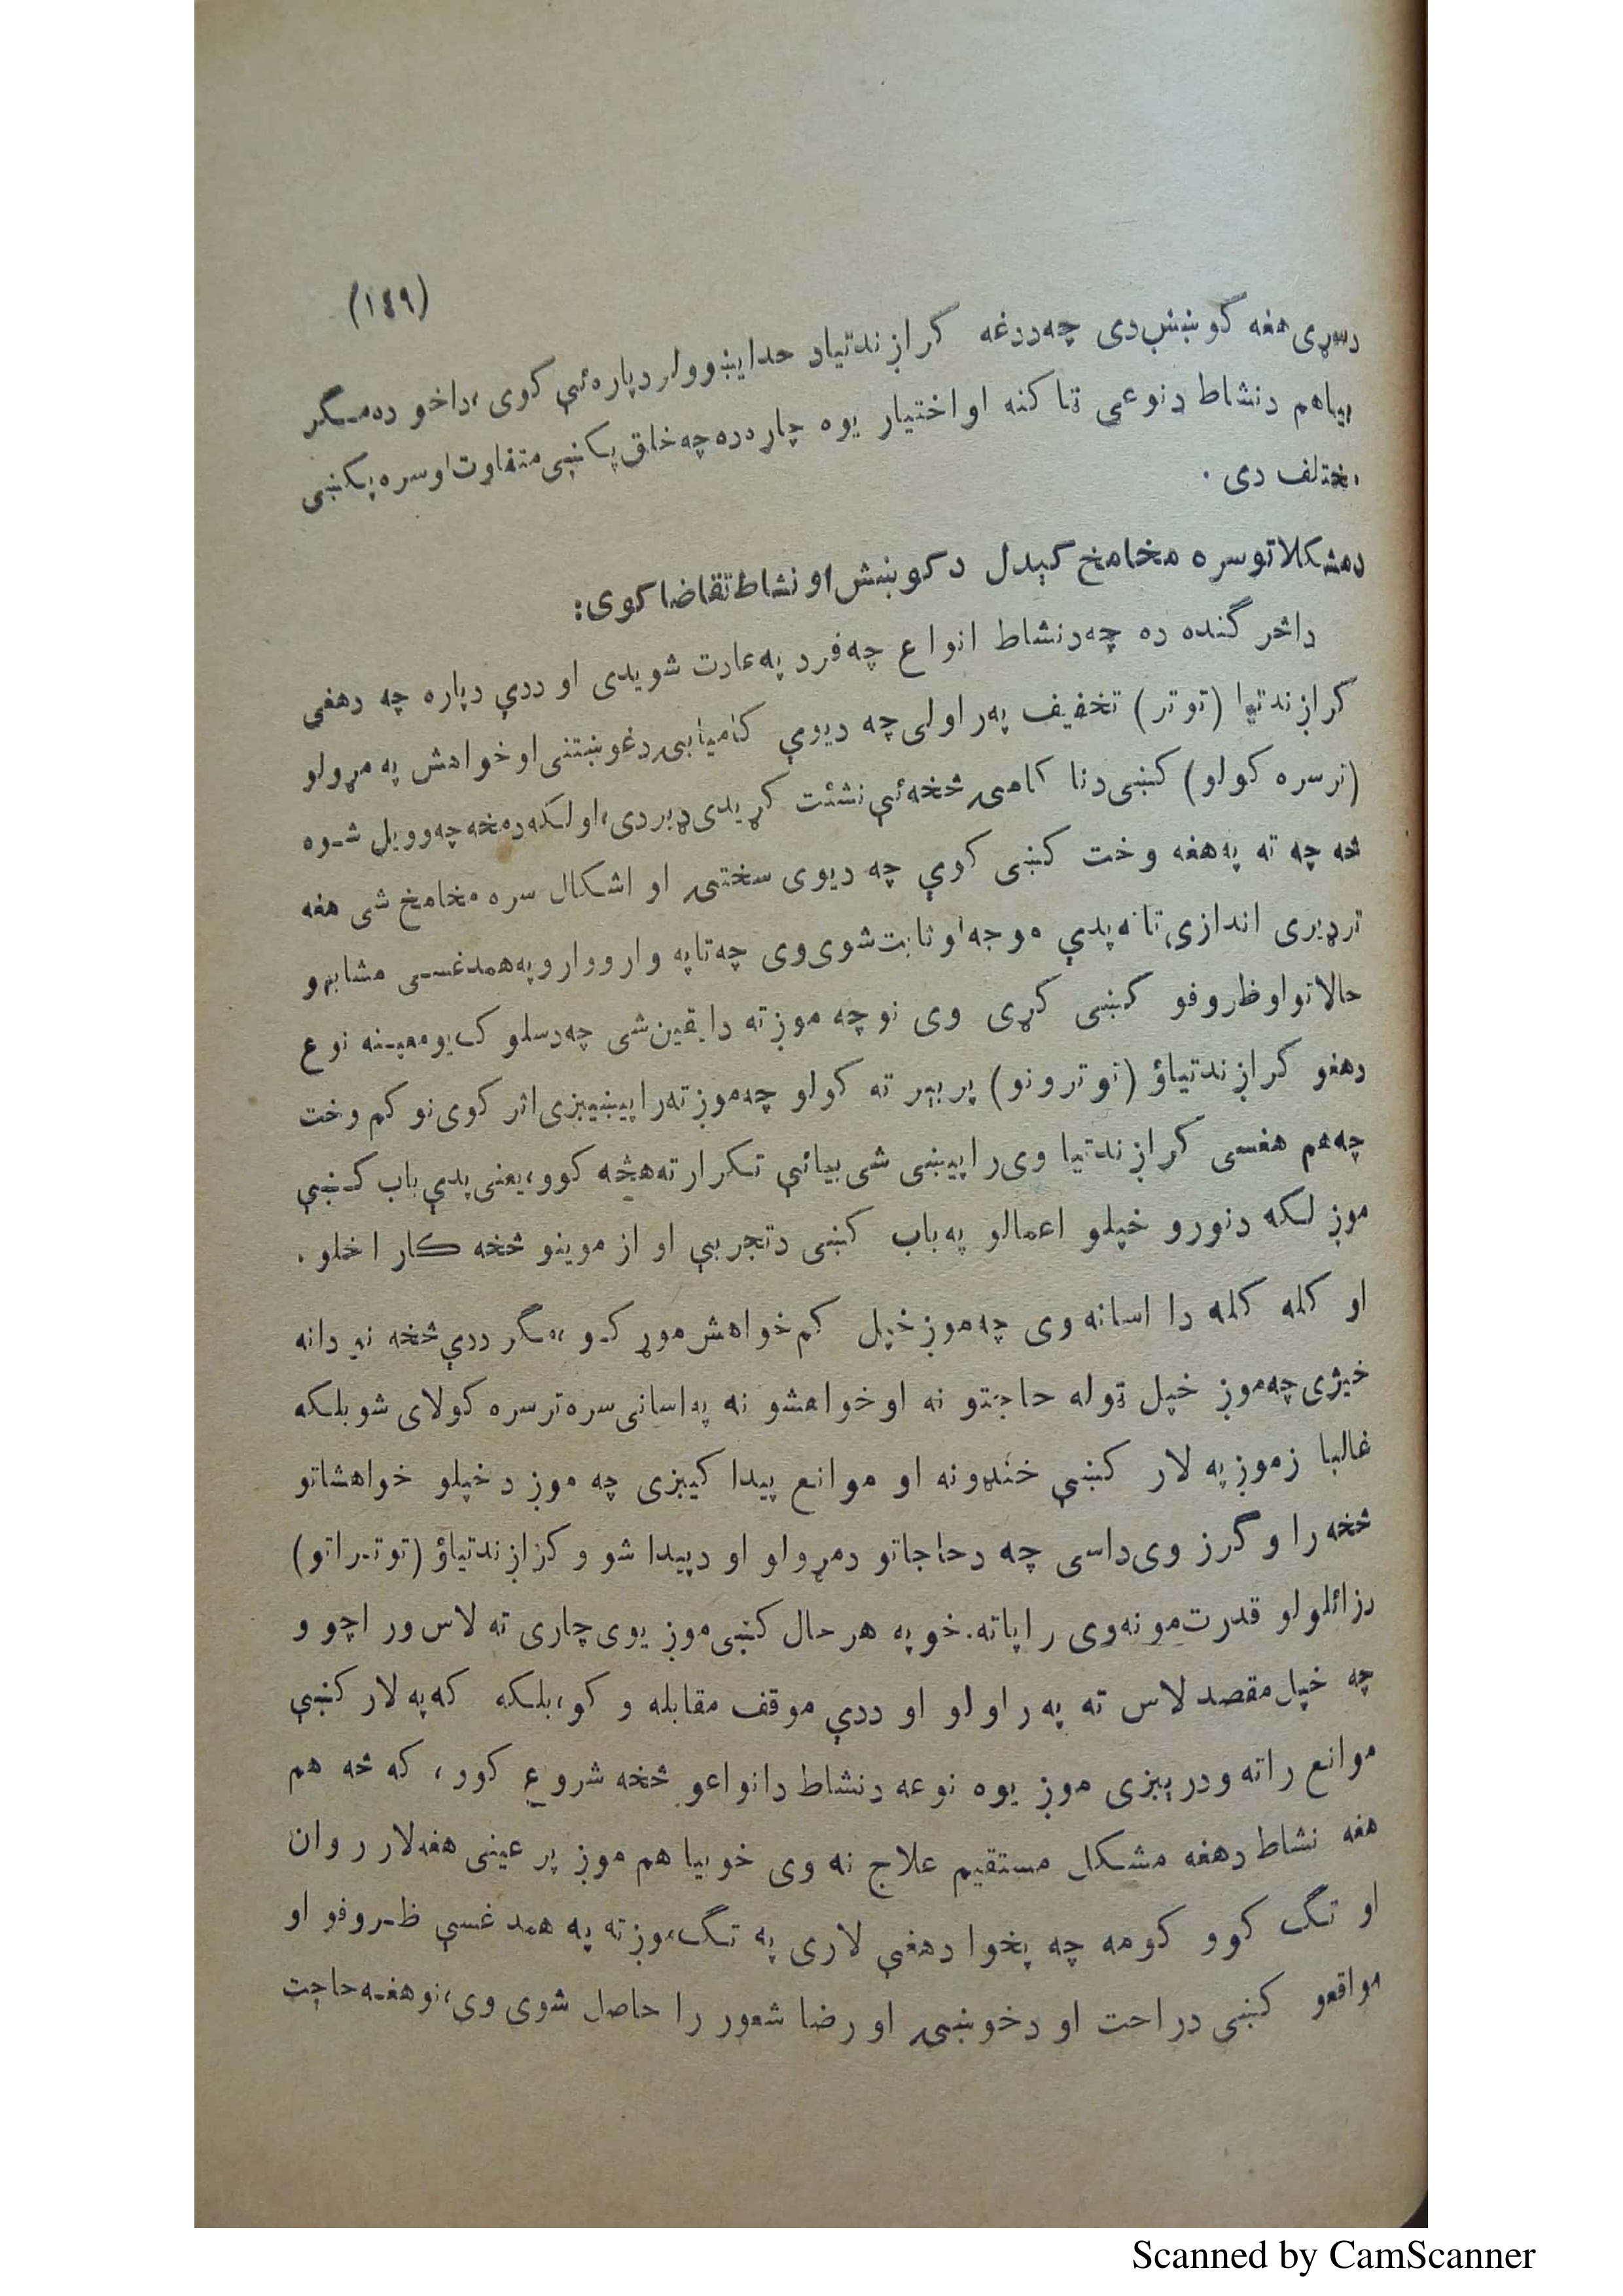 (۱۴۹)
دسړی هغه کوښښ دی چه ددغه کړازندتیاد حدایښوولو دپاره ئې کوی، داخو ده مـگر
بیاهم دنشاط دنوعی ټاکنه اواختیار یوه چاره ده چه خلق پکښی متفاوت اوسره پکښی
مختلف دی .
دمشکلاتوسره مخامخ کېدل دکوښښ او نشاط تقاضا کوی:
داڅرگنده ده چه دنشاط انواع چه فرد په عادت شویدی او ددې دپاره چه دهغی
کړازندتیا (توتر) تخفیف په راولی چه دیوې کامیابۍ دغوښتنی او خواهش په مړولو
(ترسره کولو) کښی دنا کامۍ څخه ئې نشئت کړیدی ډیردی، او لکه دمخه چه وویل شـوه
څه چه ته په هغه وخت کښی کوې چه دیوی سختۍ او اشکال سره مخامخ شی هغه
ترډیری اندازی تا نه پدې موجه او ثابت شوی وی چه تا په وار وارو په همدغسـی مشابهو
حالاتو او ظروفو کښی کړی وی نو چه موږ ته دا یقین شی چه دسلوک یومعیـنه نوع
دهغو کړازندتیاؤ (توترونو) پر بېر ته کولو چه موږ ته را پیښیږی اثر کوی نو کم وخت
چه هم هغسی کړازندتیا وی را پیښی شی بیائې تـکرار ته هڅه کوو، یعنی پدې باب کـښې
موږ لکه دنورو خپلو اعمالو په باب کښی دتجربې او ازموینو څخه کار اخلو .
او کله کله دا اسانه وی چه موږ خپل کم خواهش موړ کـو، مگر ددې څخه نه دانه
خیژی چه موږ خپل ټوله حاجتو نه او خواهشو نه په اسانی سره ترسره کولای شو بلـکه
غالبا زموږ په لار کښې خنډونه او موانع پیدا کیږی چه موږ دخپلو خواهشاتو
څخه را وگرز وی داسی چه دحاجاتو دمړولو او دپیدا شو و کړازندتیاؤ (توتـراتو)
دزائلولو قدرت مو نه وی را پاته. خو په هر حال کښی موږ یوی چاری ته لاس ور اچو و
چه خپل مقصد لاس ته په راولو او ددې موقف مقابله و کو، بلـکه که په لار کښې
موانع راته ودرېږی موږ یوه نوعه دنشاط دانواعو څخه شروع کوو ، که څه هم
هغه نشاط دهغه مشکل مستقیم علاج نه وی خو بیا هم موږ پر عینی هغه لار روان
او تـگ کوو کومه چه پخوا دهغې لاری په تـگ موږ ته په همدغسې ظـروفو او
مواقعو کښی دراحت او دخوښۍ او رضا شعور را حاصل شوی وی، نو هغـه حاجت
Scanned by CamScanner